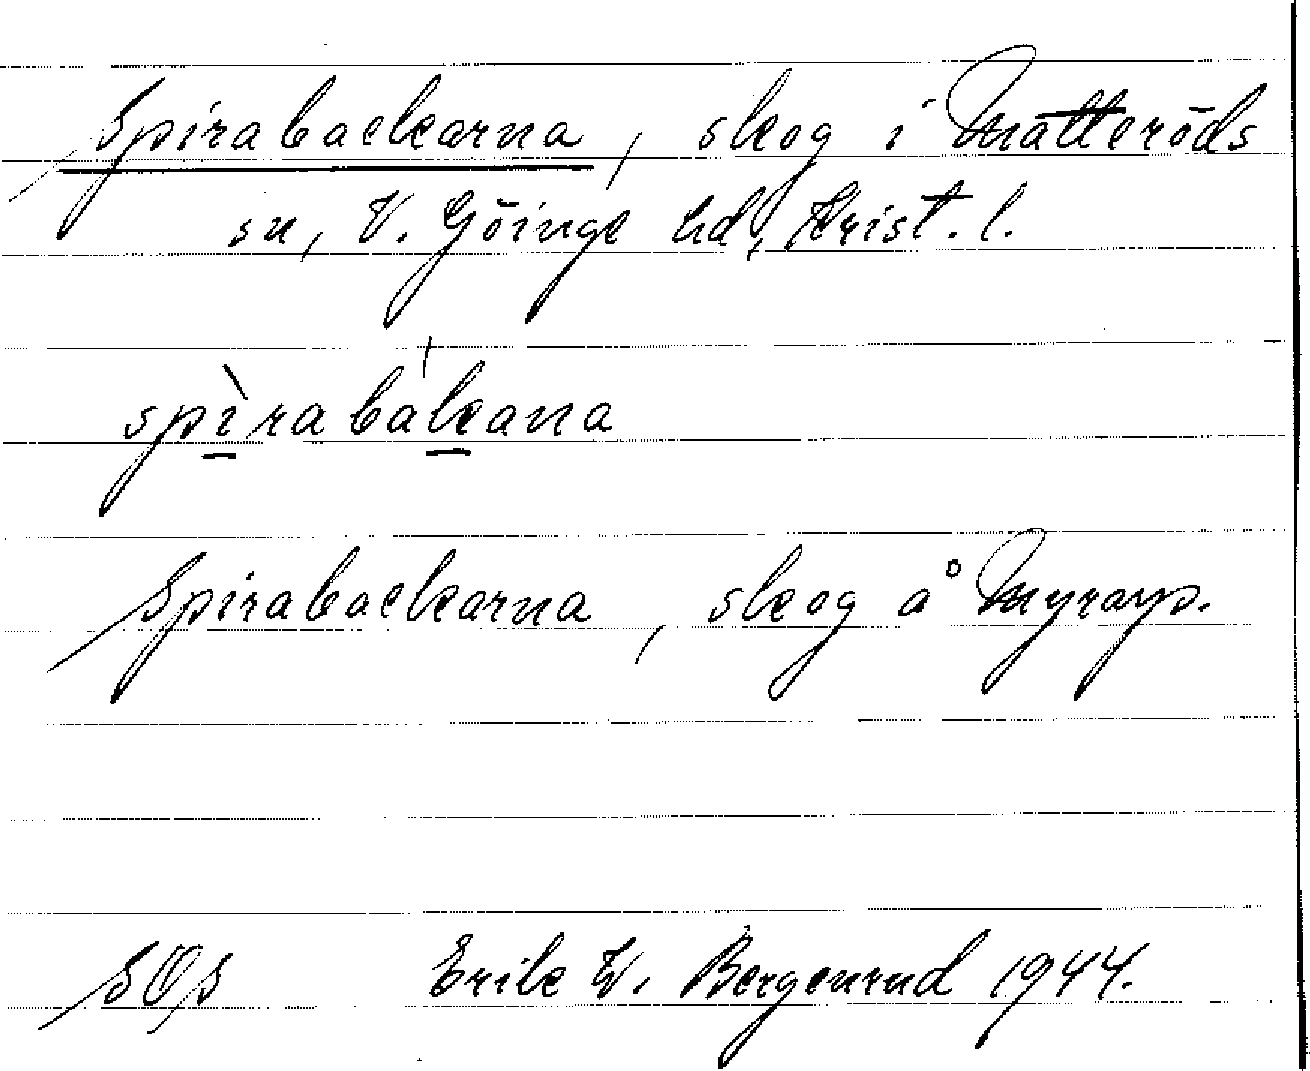 Spirabackarna, skog i Matteröds
sn, V. Göinge hd, Krist. l.
spìrabákana
Spirabackarna, skog å Myrarp.
SOS Erik W. Bergenrud 1944.